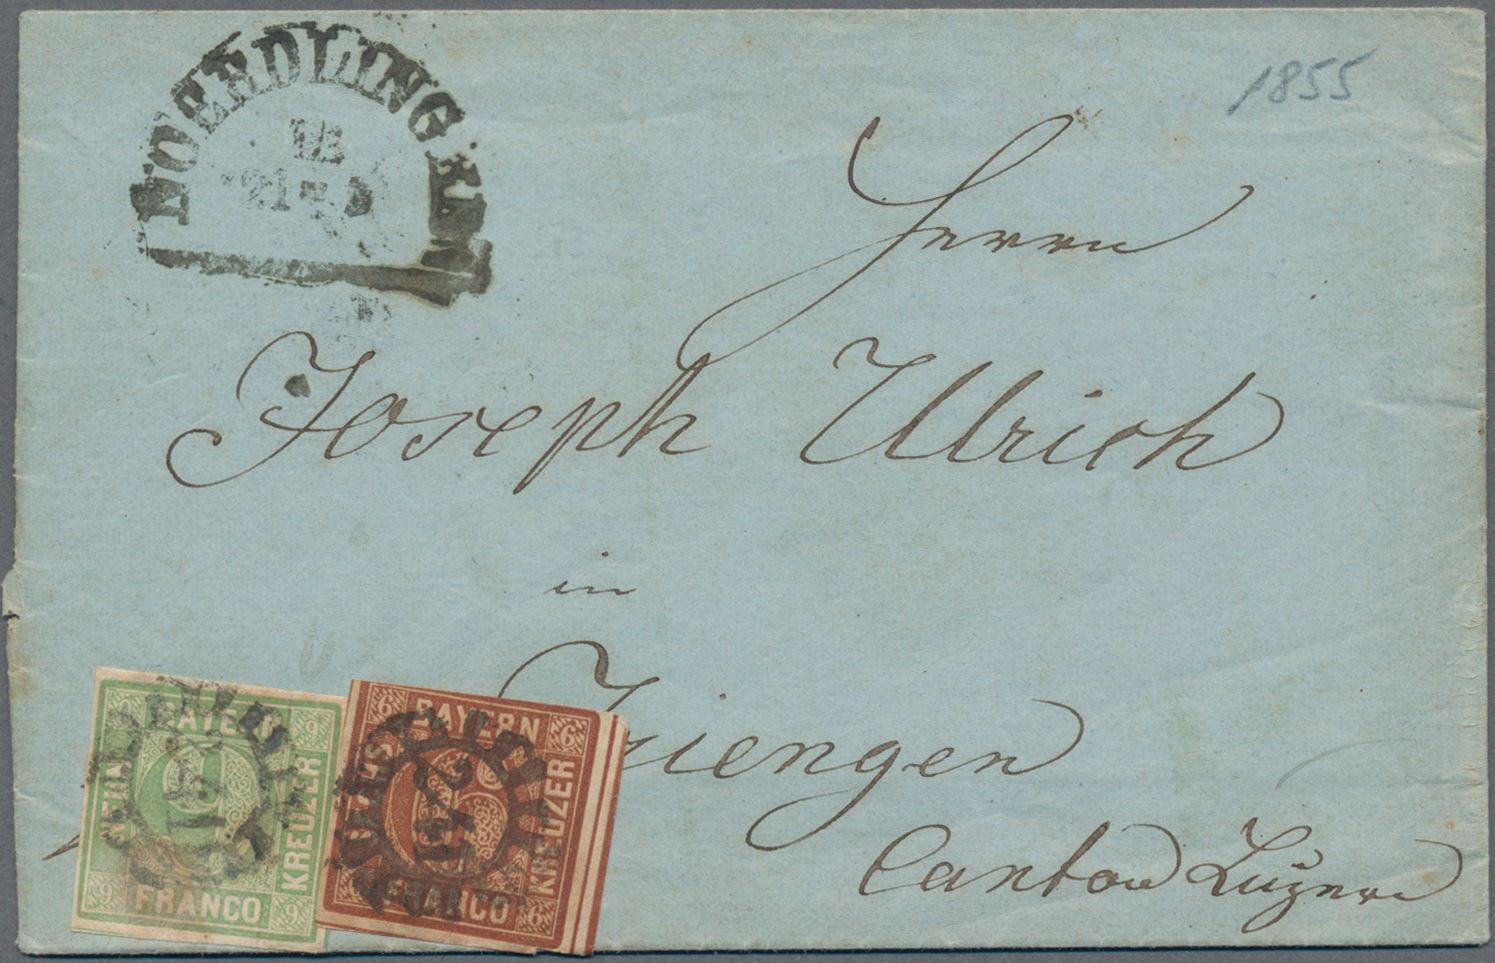 NOERDLINGEN
1855
Herrn
Joseph Ulrich
in
Canton Luzern
9 BAYERN 9
KREUZER
9 FRANCO 9
6 BAYERN 6
KREUZER
FRANCO 6